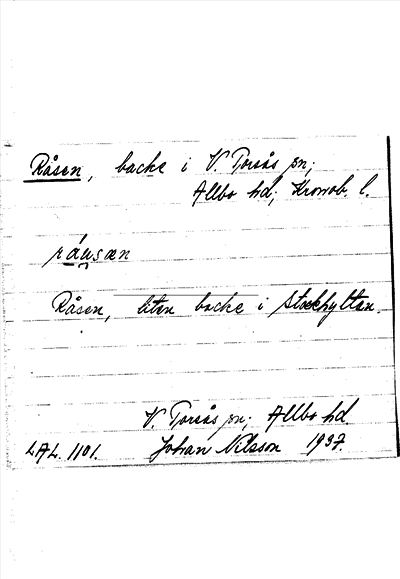 Råsen, backe i V. Torsås sn;
Allbo hd; Kronob. l.
råu̯sæn
Råsen, liten backe i Stockhyltan.
V. Torsås sn; Allbo hd.
LAL. 1101. Johan Nilsson 1937.